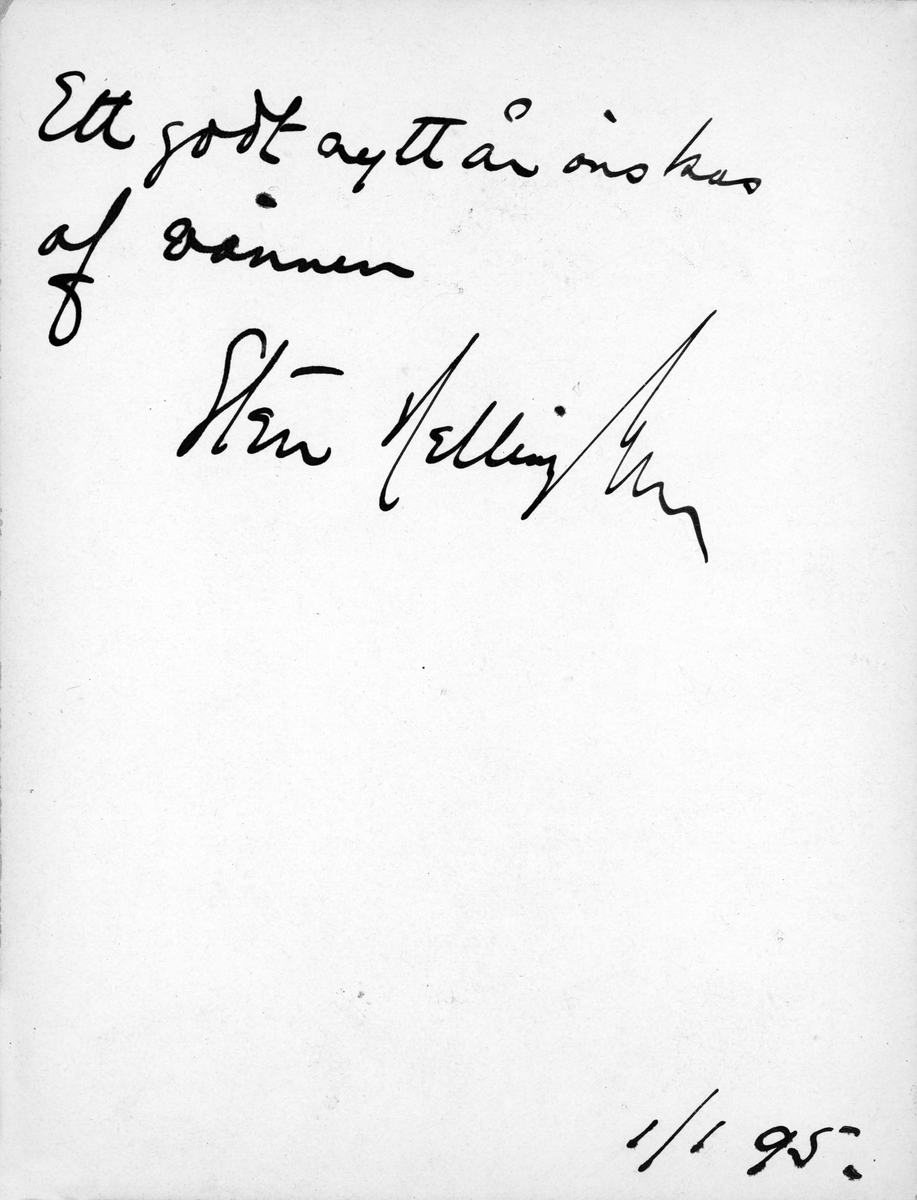 Ett godt nytt år önskas
af vännen
Sten
1/1 95.